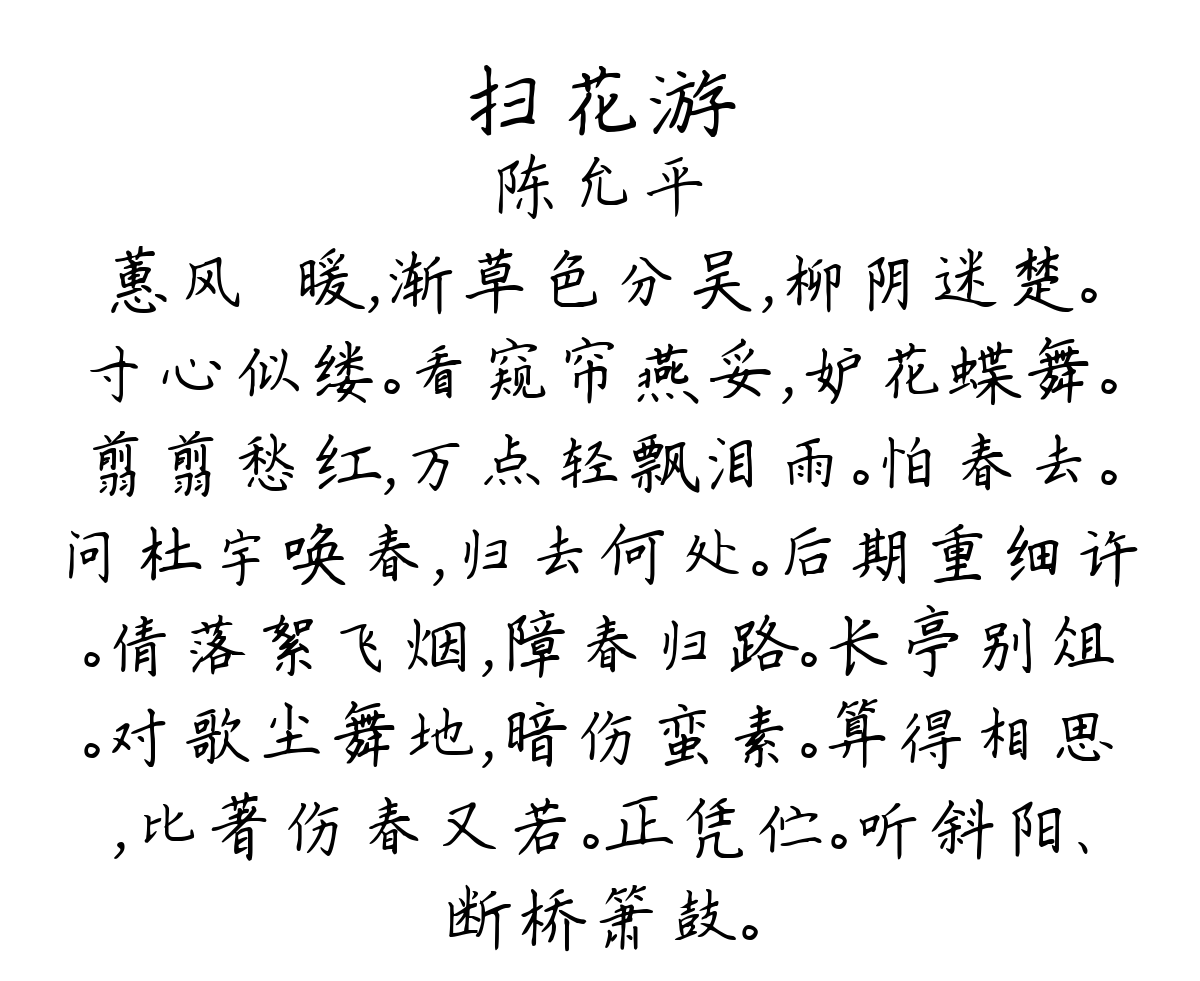 扫花游
陈允平
蕙风 暖,渐草色分吴,柳阴迷楚。
寸心似缕。看窥帘燕妥,妒花蝶舞。
翦翦愁红,万点轻飘泪雨。怕春去。
问杜宇唤春,归去何处。后期重细许
。倩落絮飞烟,障春归路。长亭别俎
。对歌尘舞地,暗伤蛮素。算得相思
,比著伤春又若。正凭伫。听斜阳、
断桥箫鼓。